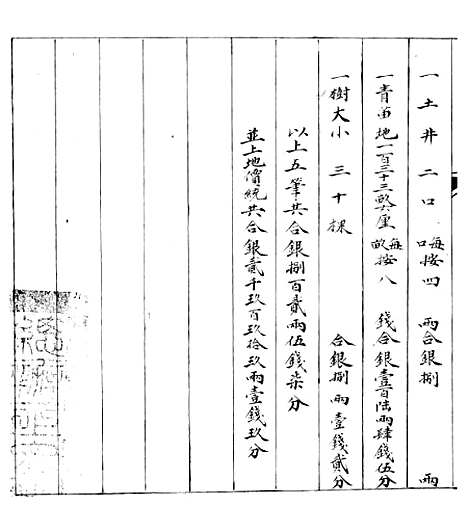 一土井二口 每口按四兩合銀捌兩
一青苗地一百三十三畝六厘 每畝按八錢合銀壹百陸兩肆錢伍分
一樹大小三十棵 合銀捌兩壹錢貳分
以上五筆共合銀捌百貳兩伍錢柒分
並上地價統共合銀貳千玖百玖拾玖兩壹錢玖分